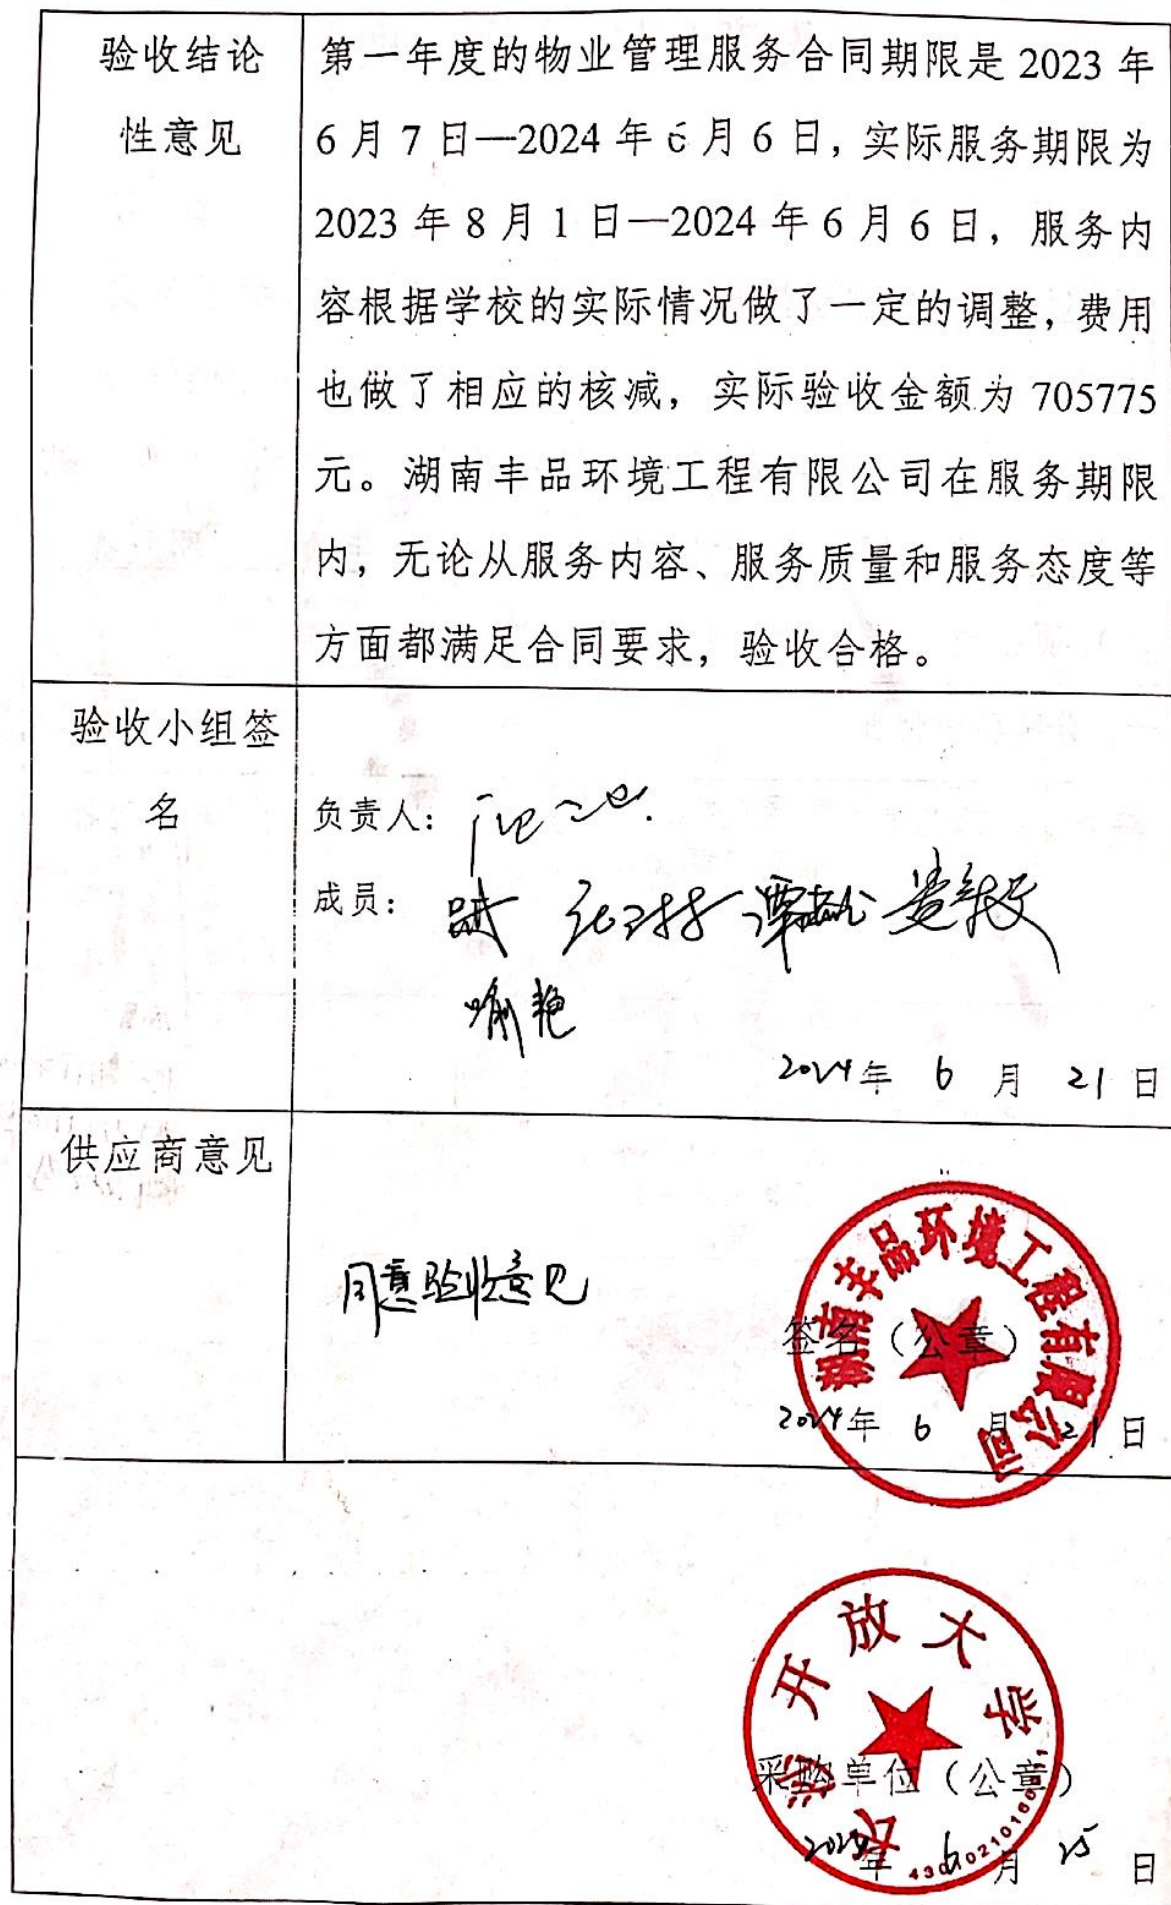 验收结论
性意见
第一年度的物业管理服务合同期限是 2023 年
6 月 7 日—2024 年 6 月 6 日，实际服务期限为
2023 年 8 月 1 日—2024 年 6 月 6 日，服务内
容根据学校的实际情况做了一定的调整，费用
也做了相应的核减，实际验收金额为 705775
元。湖南丰品环境工程有限公司在服务期限
内，无论从服务内容、服务质量和服务态度等
方面都满足合同要求，验收合格。
验收小组签
名
负责人：
成员：
喻艳
2024年 6 月 21 日
供应商意见
同意验收意见
湖南丰品环境工程有限公司
签名（公章）
2024年 6 月 21 日
长沙开放大学
采购单位（公章）
2024年 6 月 25 日